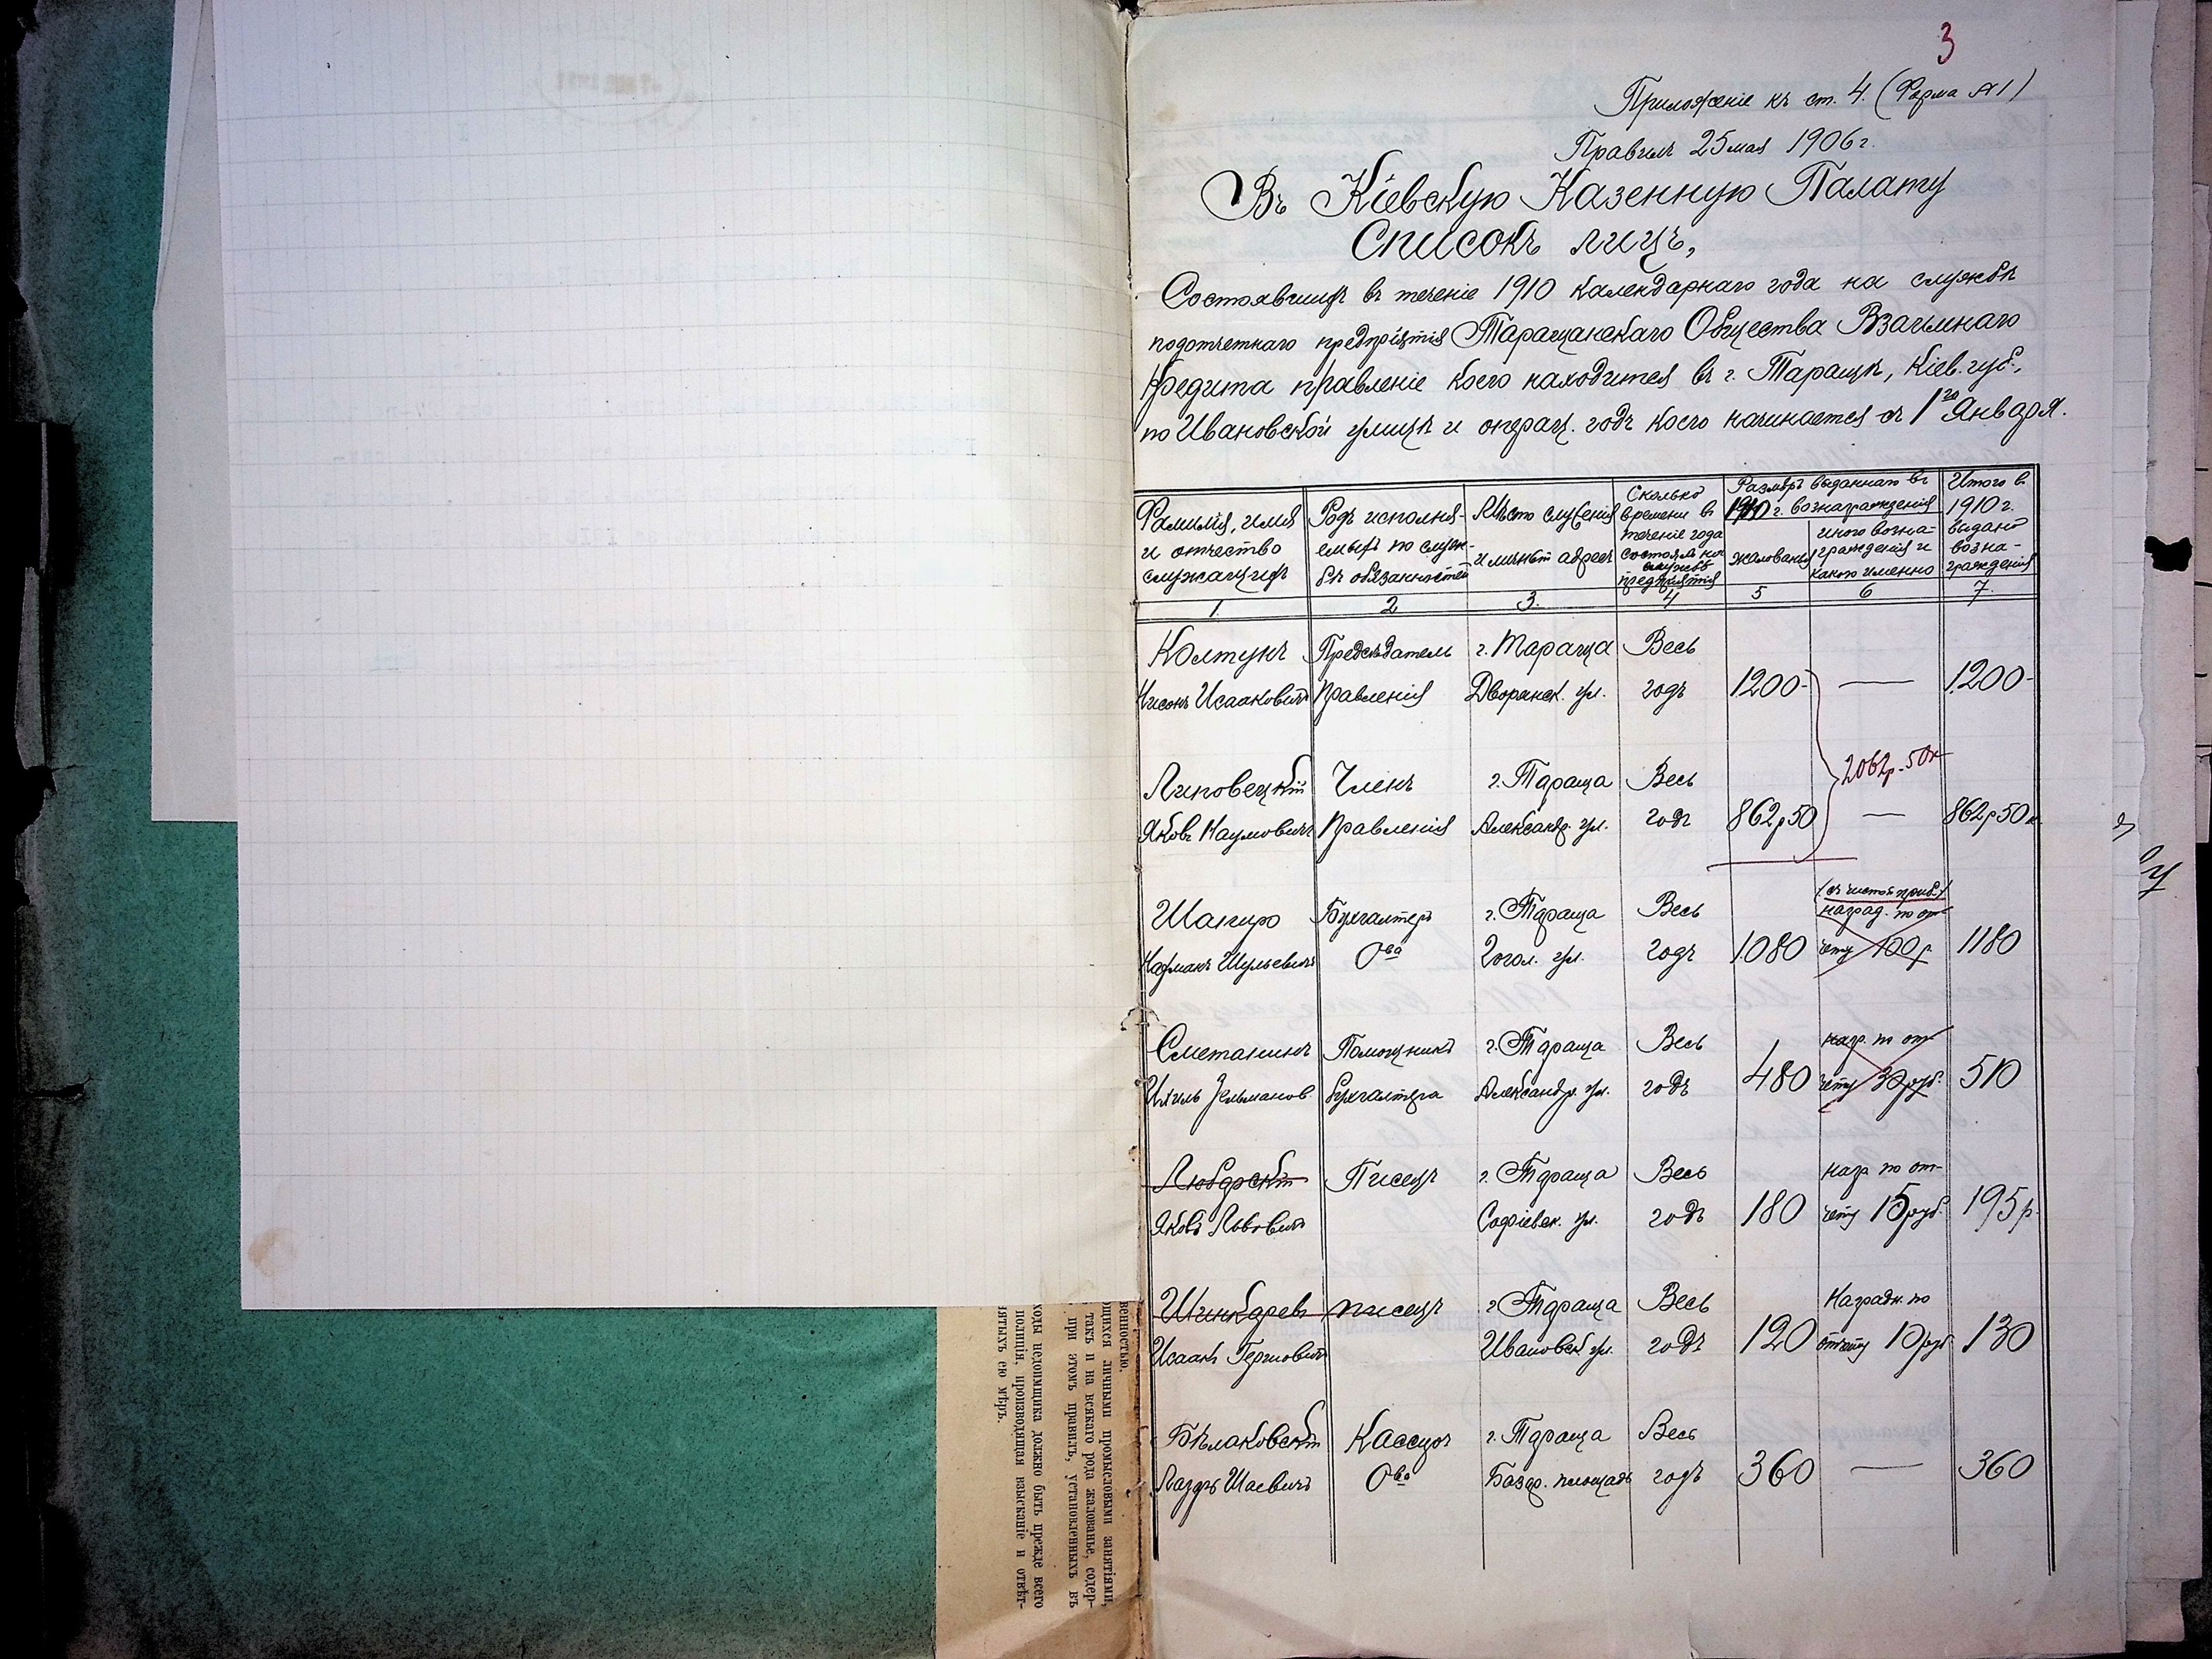 3
Приложеніе къ ст. 4. (Форма №1)
Правилъ 25 мая 1906 г.
Въ Кіевскую Казенную Палату
Списокъ лицъ,
Состоявшихъ въ теченіе 1910 календарнаго года на службѣ
подотчетнаго предпріятія Таращанскаго Общества Взаимнаго
Кредита правленіе коего находится въ г. Таращѣ, Кіев. губ.,
по Ивановской улицѣ и операц. годъ коего начинается съ 1го Января.
Фамилія, имя и отчество служащихъ
Родъ исполняемыхъ по службѣ обязанностей
Мѣсто служенія и личный адресъ
Сколько времени въ теченіе года состоялъ на службѣ предпріятія
Размѣръ выданнаго въ 1910 г. вознагражденія
жалованья
иного вознагражденія и какого именно
Итого въ 1910 г. выдано вознагражденія
1. 2 3. 4 5 6 7.
Колтунъ Предсѣдатель г. Тараща Весь
Нисонъ Исааковичъ Правленія Дворянск. ул. годъ 1200- — 1200-
2062р. 50к
Липовецкій Членъ г. Тараща Весь
Яковъ Наумовичъ Правленія Александр. ул. годъ 862р50 — 862р50к
(съ чистой приб.)
Шапиро Бухгалтеръ г. Тараща Весь наград. по от-
Нахманъ Шулевичъ Ова Гогол. ул. годъ 1080 чету 100р 1180
Сметанинъ Помощникъ г. Тараща Весь нагр. по от-
Зельманов. бухгалтера Александр. ул. годъ 480 чету 30 руб. 510
Любарскій Писецъ г. Тараща Весь нагр по от-
Яковъ Львовичъ Софіевск. ул. годъ 180 чету 15 руб. 195р.
Шинкаревъ писецъ г Тараща Весь Наградн. по
Исаакъ Гершовичъ Ивановск ул. годъ 120 отчету 10 руб 130
Бѣлаковскій Кассиръ г. Тараща Весь
Лазарь Шаевичъ Ова Базар. площадь годъ 360 — 360
венностью.
щихся личными промысловыми занятіями,
такъ и на всякаго рода жалованье, содер-
при этомъ правилъ, установленныхъ въ
ходы недоимщика должно быть прежде всего
полиція, производящая взысканіе и отвѣт-
нятыхъ ею мѣръ.